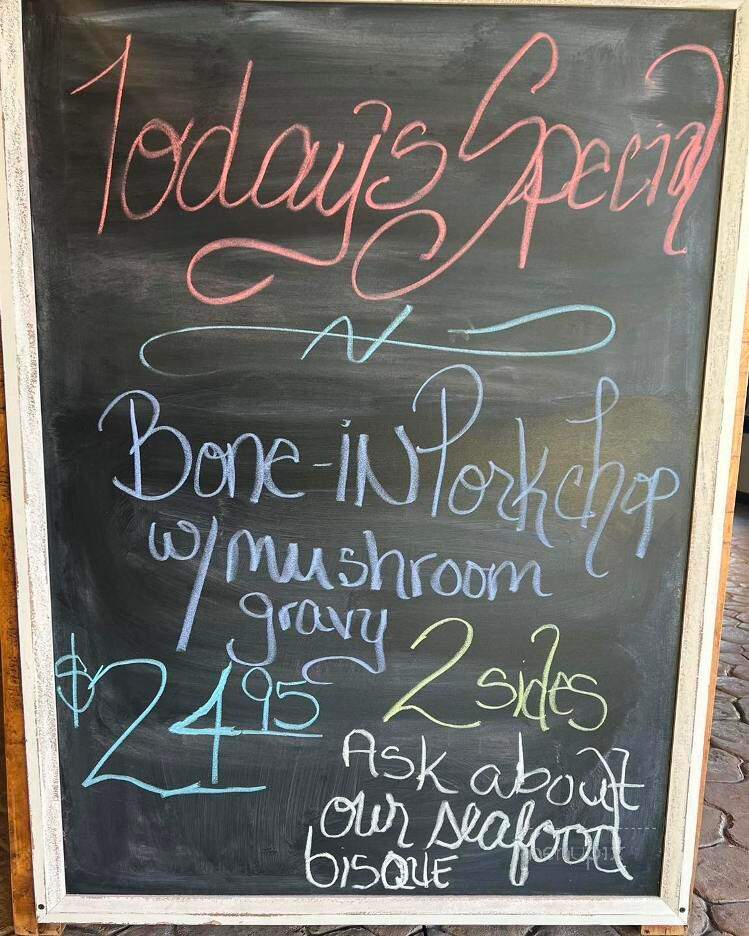 Today's Special
Bone-IN Porkchop
w/mushroom
gravy
$24.95
2 sides
Ask about
our seafood
bISQUE